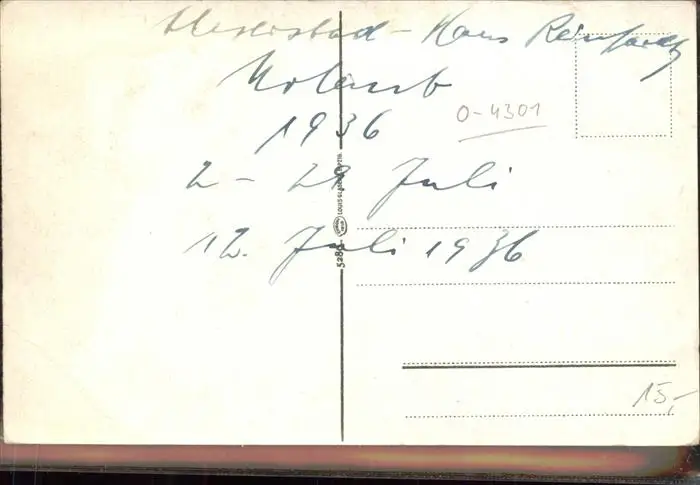 Alexisbad - Haus Reinhardt
Urlaub
1936
O-4301
2 - 29 Juli
12. Juli 1936
5280
LOUIS GLASER, LEIPZIG
15,-